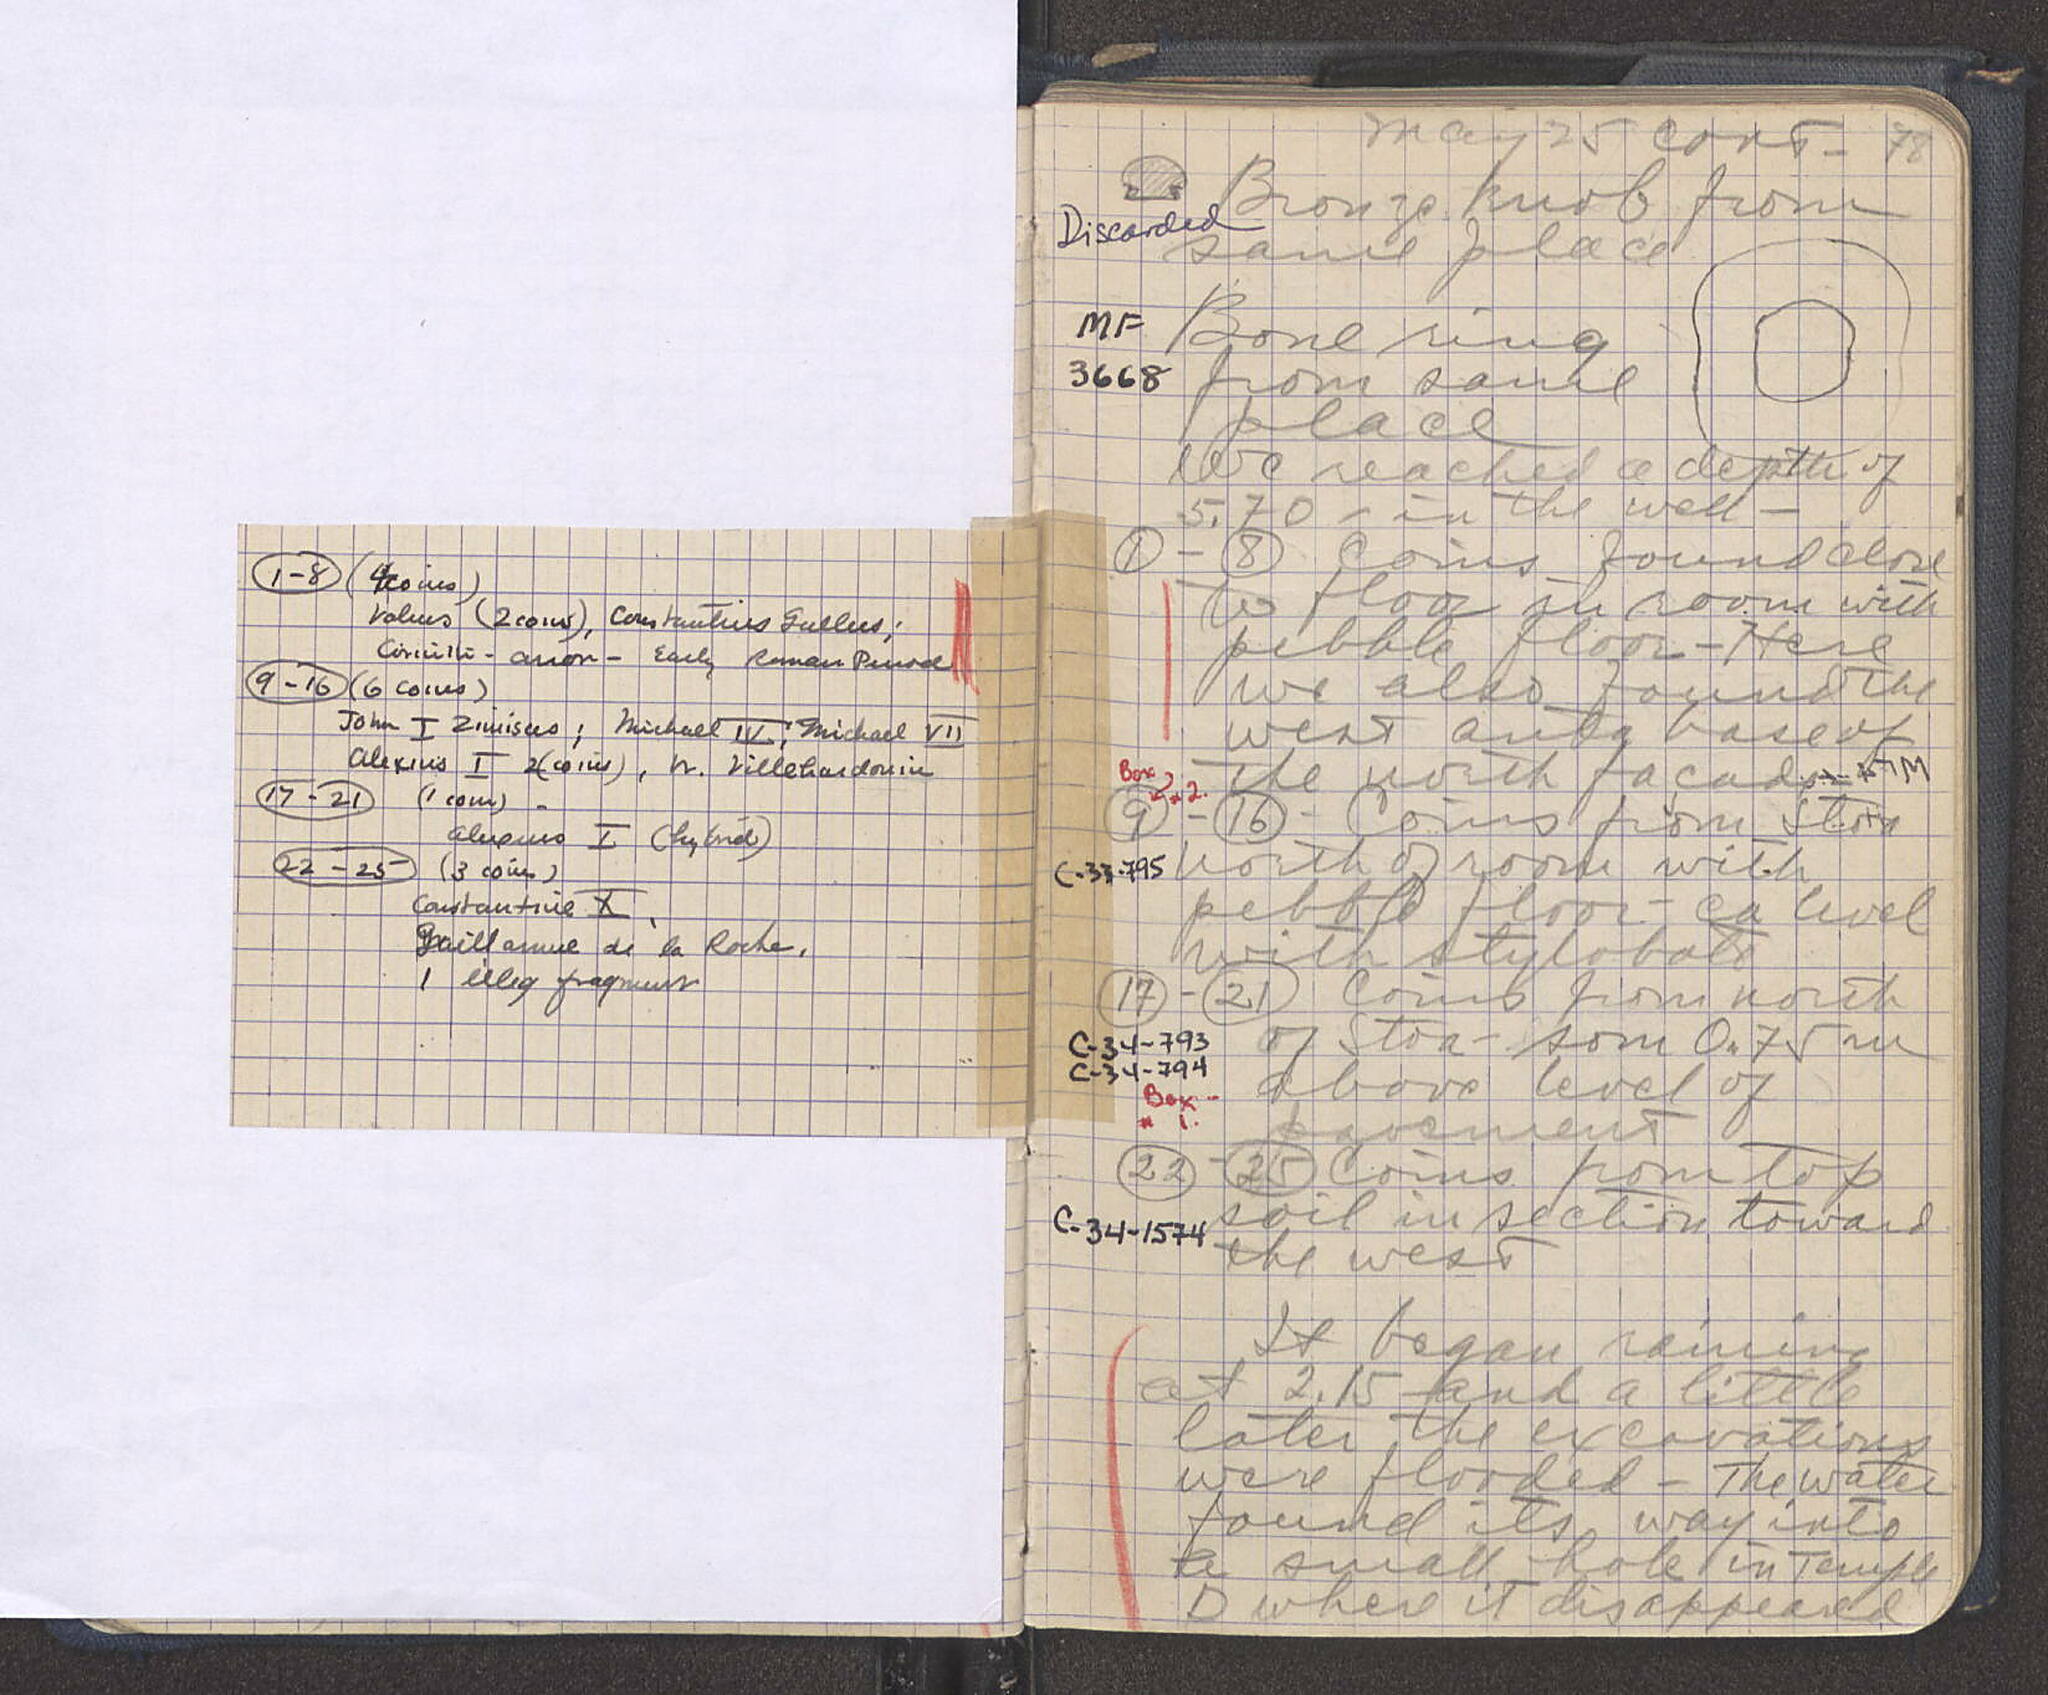 1-8 (4 coins)
Valens (2 coins), Constantius Gallus;
Corinth - - Early Roman Period
9-16 (6 coins)
John I Zimisces; Michael IV; Michael VII
Alexius I 2(coins), W. Villehardouin
17-21 (1 coin) -
Alexius I (hybrid)
22-25 (3 coins)
Constantine X,
Guillaume de la Roche,
1 illeg fragment
May 25 cont- 78
Bronze knob from
Discarded
same place
MF Bone ring
3668 from same
place
We reached a depth of
5.70 - in the well -
1 - 8 Coins found close
to floor in room with
pebble floor - Here
we also found the
west anta base of
the north facade
Box
* 2.
9 - 16 - Coins from Stoa
C-33-795 north of room with
pebble floor - ca level
with stylobate
17 - 21 Coins from north
C-34-793 of Stoa - som 0.75 m
C-34-794 above level of
Box -
* 1.
pavement
22 - 25 Coins from top
C-34-1574 soil in section toward
the west
It began raining
at 2.15 and a little
later the excavations
were flooded - The water
found its way into
a small hole in Temple
D where it disappeared